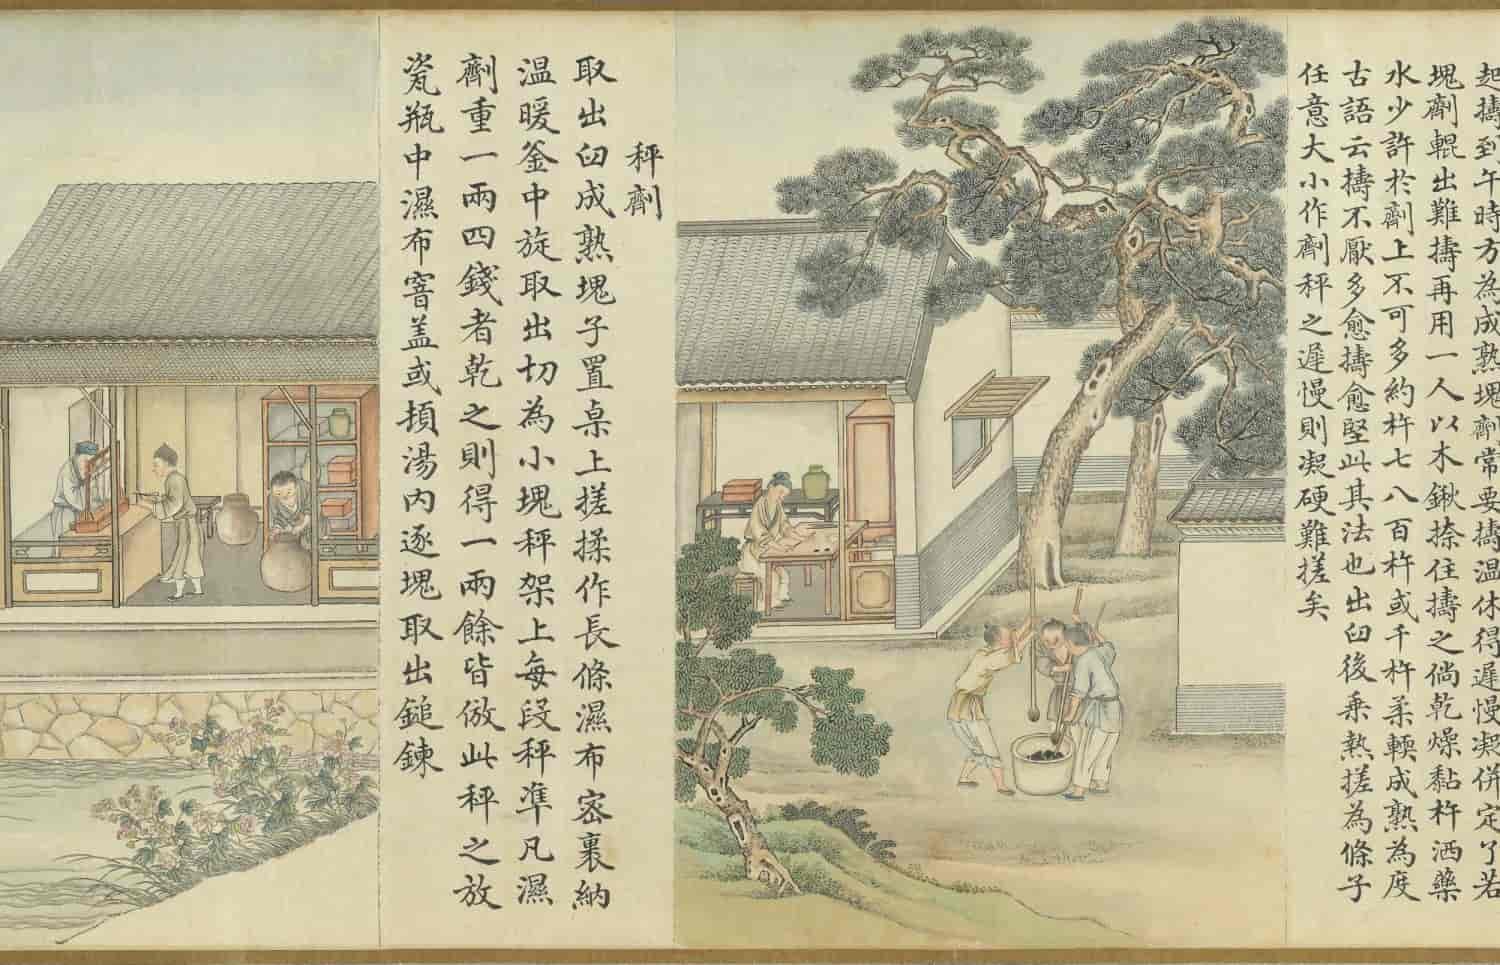 起擣到午時方為成熟塊劑常要擣温休得遲慢凝併定了若
塊劑輥出難擣再用一人以木鍬捺住擣之倘乾燥黏杵洒藥
水少許於劑上不可多約杵七八百杵或千杵柔輭成熟為度
古語云擣不厭多愈擣愈堅此其法也出臼後乘熱搓為條子
任意大小作劑秤之遲慢則凝硬難搓矣
秤劑
取出臼成熟塊子置桌上搓揉作長條濕布密裹納
温暖釜中旋取出切為小塊秤架上每段秤準凡濕
劑重一兩四錢者乾之則得一兩餘皆倣此秤之放
瓷瓶中濕布窨盖或頓湯内逐塊取出鎚鍊